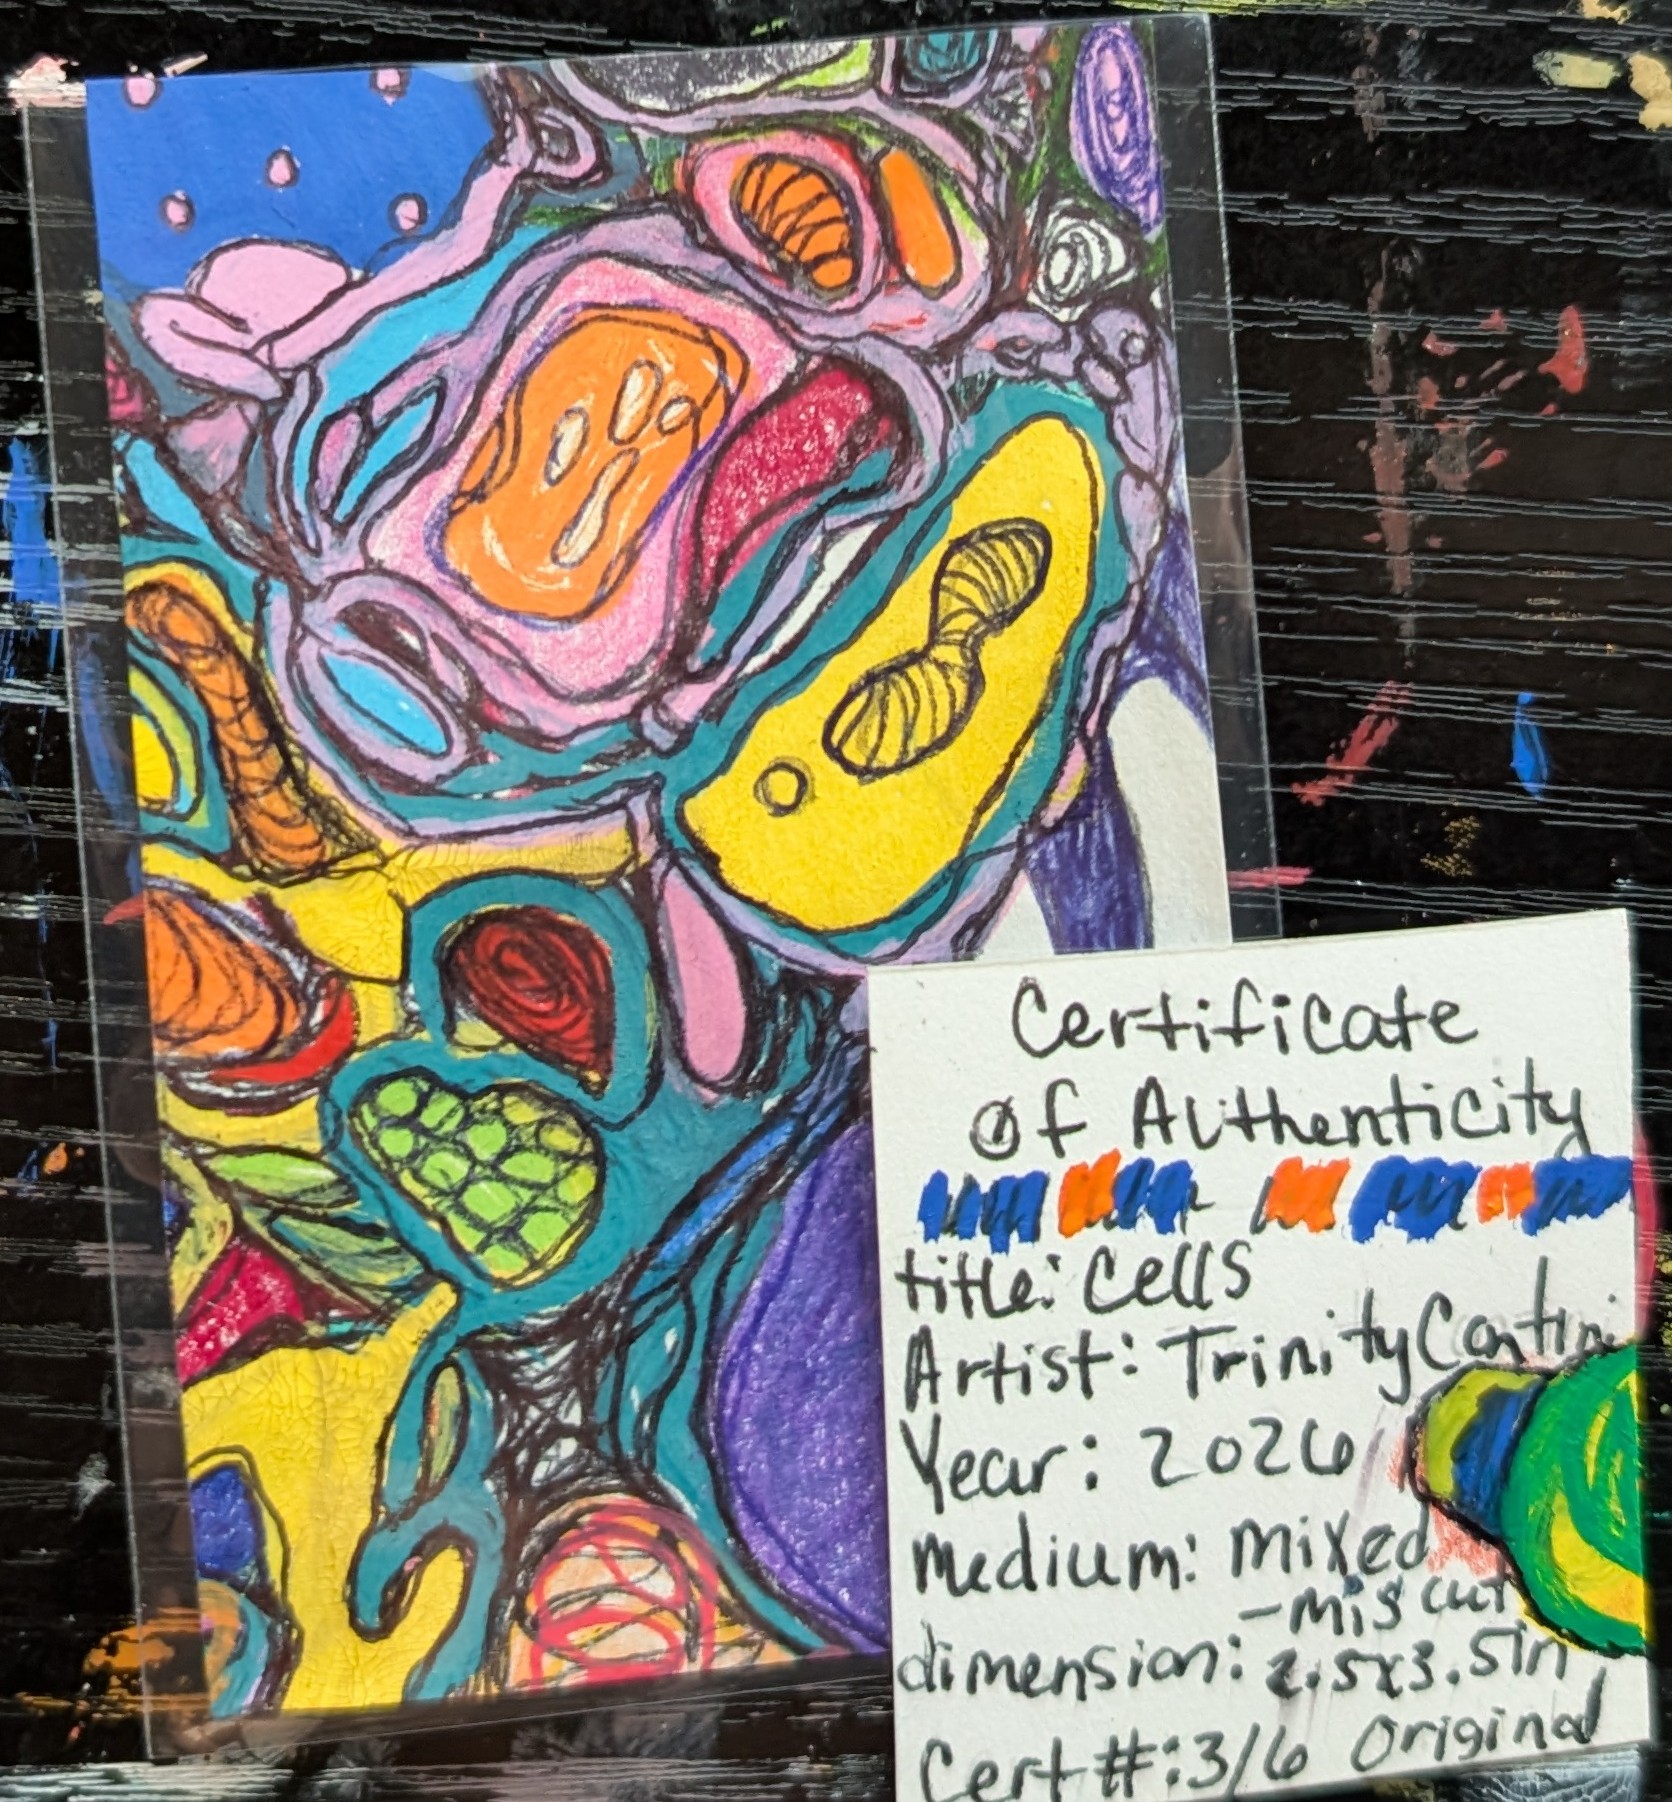 Certificate
Of Authenticity
title: Cells
Artist: Trinity Contini
Year: 2026
Medium: Mixed
-Mis cut
dimension: 2.5x3.5in
Cert#:3/6 Original